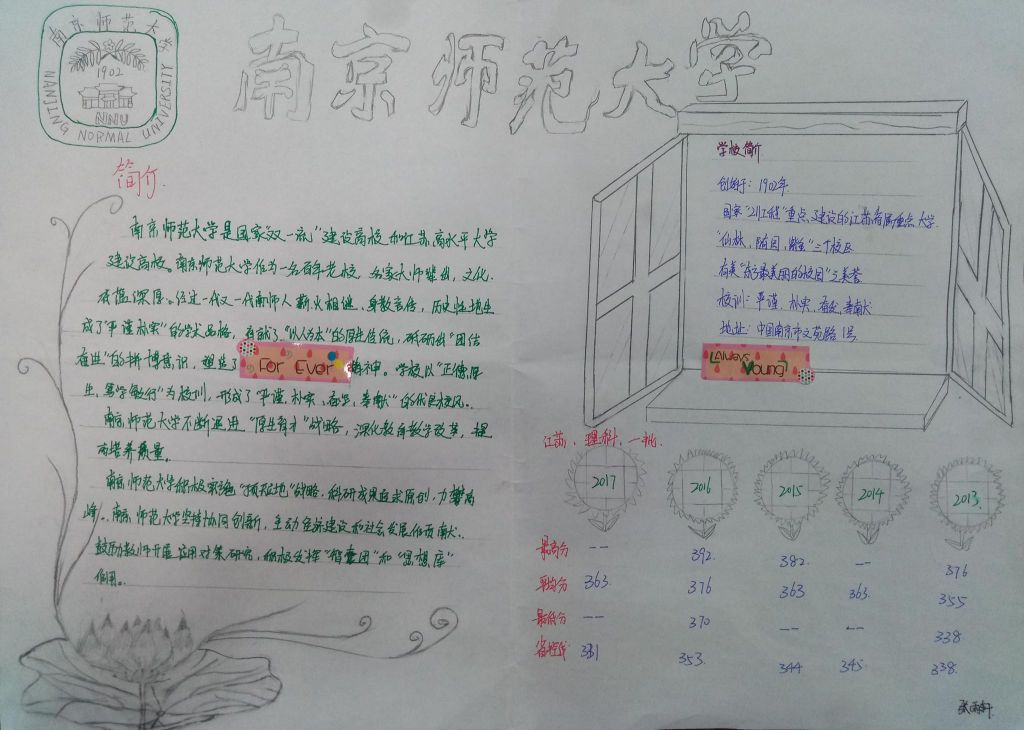 南京师范大学
南京师范大学
1902
NNU
NANJING NORMAL UNIVERSITY
简介.
南京师范大学是国家"双一流"建设高校和江苏高水平大学
建设高校。南京师范大学作为一名百年老校,名家大师辈出,文化
底蕴深厚。经过一代又一代南师人薪火相继、身教言传,历史性地生
成了"严谨朴实"的学术品格,
"以人为本"的厚生传统,
"团结
奋进"的拼搏意识,塑造了
精神。学校以"正德厚
生、笃学敏行"为校训,形成了"严谨、朴实、奋进、奉献"的优良校风。
南京师范大学不断运用"厚生育才"战略,深化教育教学改革,提
高培养质量。
南京师范大学积极实施"顶天立地"战略,科研成果追求原创,力攀高
峰。南京师范大学坚持协同创新,主动为经济建设和社会发展作贡献。
鼓励教师开展应用对策研究,积极发挥"智囊团"和"思想库"
作用。
For Ever
学校简介
创办于:1902年
国家"211工程"重点建设的江苏省属重点大学
"仙林、随园、紫金"三个校区
有着"东方最美丽的校园"之美誉
校训:严谨、朴实、奋进、奉献
地址:中国南京市文苑路1号
Always Young!
江苏、理科、一批
2017 2016 2015 2014 2013
最高分 -- 392. 382. -- 376
平均分 363. 376 363 363. 355
最低分 -- 370 -- -- 338
省控线 331 353. 344 345. 338.
张雨轩